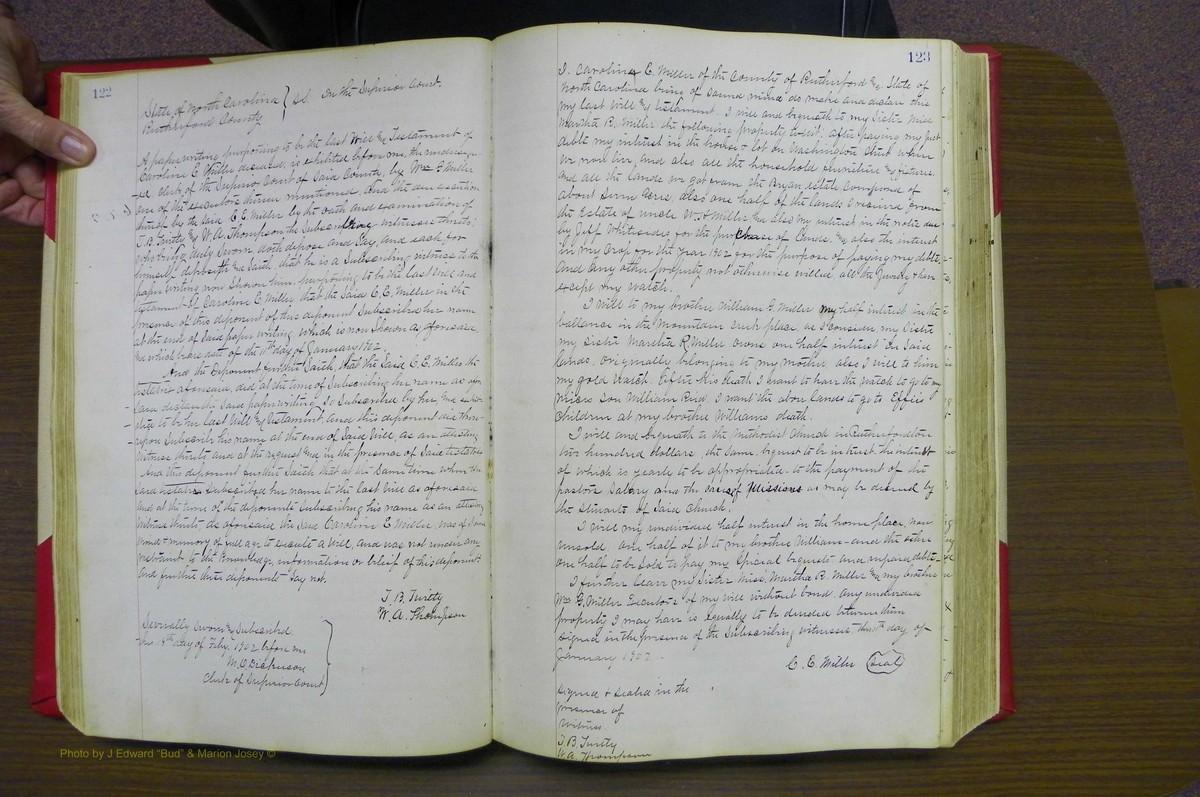 122
State of North Carolina } S.S. In the Superior Court.
Rutherford County
A paper writing purporting to be the last Will & Testament of
Caroline E Miller deceased, is exhibited before me, the undersign-
-ed clerk of the Superior Court of said County, by Wm G Miller
one of the executors therein mentioned, and the due execution
thereof by the said C. E. Miller by the oath and examination of
T. B. Twitty & W. A. Thompson the Subscribing witnesses thereto;
who being duly sworn doth depose and say, and each for
himself deposeth & saith, that he is a Subscribing witness to the
paper writing now shown him, purporting to be the last will and
testament of Caroline E Miller that the said C. E. Miller in the
presence of this deponent Subscribed her name
at the end of said paper writing which is now shown as aforesaid,
& which bears date of the 11th day of January 1902.
And the deponent further saith, that the said C. E. Miller the
testatrix aforesaid, did at the time of subscribing her name as afore-
said declare the said paper writing so subscribed by her and exhib-
ited to be her last Will & Testament, and this deponent did there-
upon subscribe his name at the end of said Will, as an attesting
witness thereto and at the request and in the presence of said testatrix
And this deponent further saith that at the same time when the
said testatrix subscribed her name to the last will as aforesaid,
and at the time of the deponents subscribing his name as an attesting
witness thereto as aforesaid the said Caroline E Miller, was of sound
mind & memory of full age to execute a Will, and was not under any
restraint to the knowledge, information or belief of this deponent
and further these deponents say not.
T. B. Twitty
W. A. Thompson
Severally sworn & subscribed
this 4th day of Feby. 1902 before me
M. O. Dickerson
Clerk of Superior Court
123
I. Caroline E. Miller of the County of Rutherford & State of
North Carolina being of sound mind do make and declare this
my last will & testament. I will and bequeath to my Sister Miss
Martha R. Miller the following property to-wit, after paying my just
debts my interest in the house & lot on Washington Street where
we now live, and also all the household furniture & fixtures
and all the lands we got from the Bryan estate composed of
about seven acres, also one half of the lands I receive from
the Estate of uncle W. H Miller and also my interest in the notes due
by Jeff Whitesides for the purchase of lands, & also the interest
in my crop for the Year 1902 for the purpose of paying my debts,
and any other property not otherwise willed, all the Jewelry I have
except my watch.
I will to my brother William G Miller my half interest in the
ballance in the Mountain Creek place, as I consider my Sister
my Sister Martha R. Miller owns one half interest in said
lands, originally belonging to my mother, also I will to him
my gold watch. After his death I want to have the watch to go to my
nieces son William Reid. I want the above lands to go to Effies
children at my brother Williams death.
I will and bequeath to the Methodist Church in Rutherfordton
two hundred dollars, the same bequest to be in trust, the interest
of which is yearly to be appropriated to the payment of the
pastors salary and the cause of Missions as may be deemed by
the Stewarts of said Church.
I will my undivided half interest in the home place, now
unsold one half of it to my brother William - and the other
one half to be sold to pay my special bequests and unpaid debts -
I further leave my Sister Miss. Martha R. Miller and my brother
Wm G. Miller Executors of my will without bond. Any undivided
property I may have is equally to be divided between them
signed in the presence of the subscribing witnesses this 11th day of
January 1902.
C. E. Miller (Seal)
Signed & sealed in the
presence of
Witness
T. B. Twitty
W. A. Thompson
Photo by J Edward "Bud" & Marion Josey ©